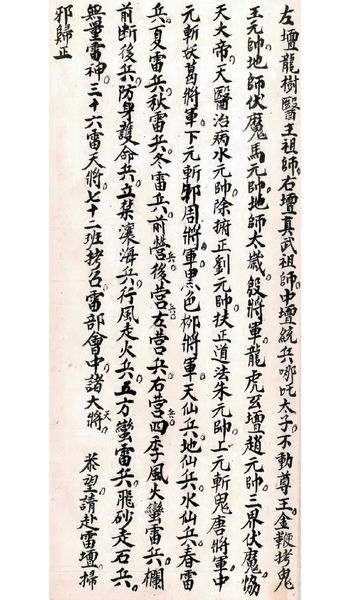 左壇龍樹醫王祖師右壇真武祖師中壇統兵哪吒太子不動尊王金鞭拷鬼
王元帥地師伏魔馬元帥地師太歲殷將軍龍虎玄壇趙元帥三界伏魔協
天大帝天醫治病水元帥除正劉元帥扶正道法朱元帥上元斬鬼唐將軍中
元斬妖葛將軍下元斬邪周將軍黑色柳將軍天仙兵地仙兵水仙兵春雷
兵夏雷兵秋雷兵冬雷兵前營兵後營兵左營兵右營兵四季風火蠻雷兵欄
前断後兵防身護命兵海兵行風走火兵五方蠻雷兵飛砂走石兵
無量雷神三十六雷天將七十二班拷召雷部會中諸天大將 恭望請赴雷壇掃
邪歸正